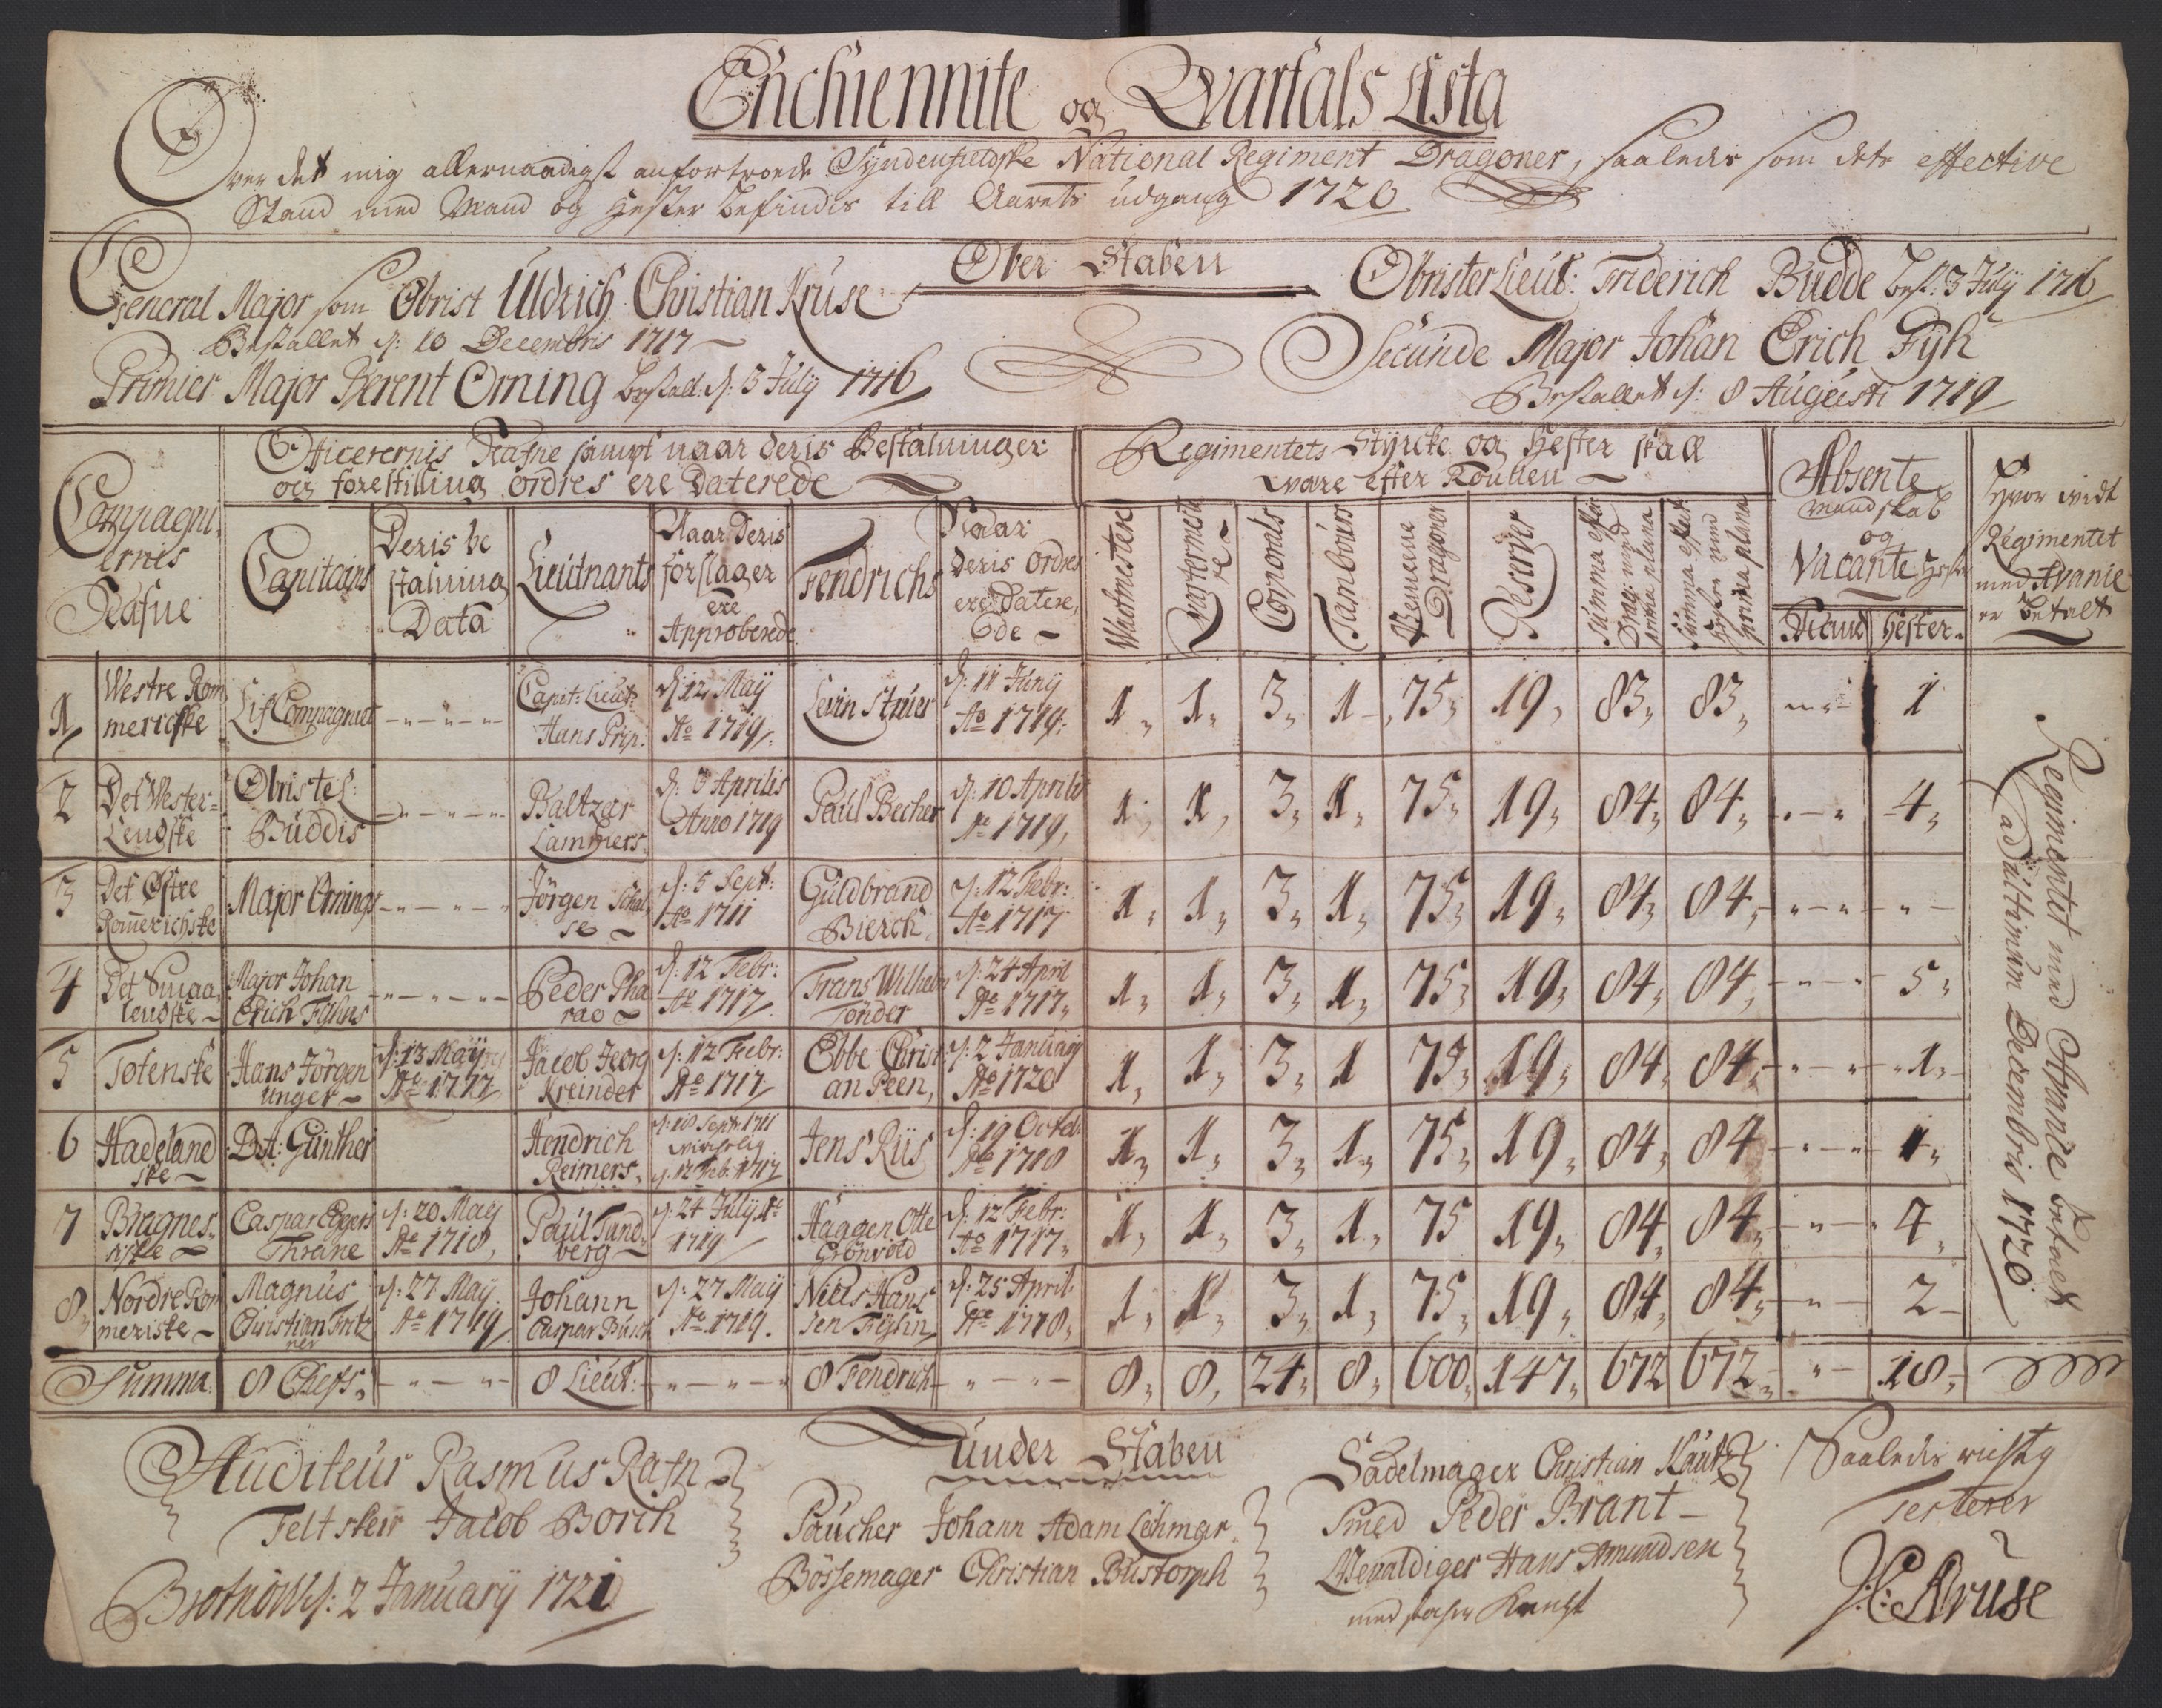 Enchiennite og Qvartals Lista
Over det mig allernaadigst anfortroede Syndenfieldske National Regiment Dragoner, saaledis som dets effective
Stand med Mand og Hester befindis till Aarets udgang 1720
Ober Staben
General Major som Obrist Uldrich Christian Kruse
Bestallet d: 10 Decembris 1717
Primier Major Berent Orning bestall: d: 3 July 1716
Obrister Lieut: Friderich Budde best: 3 July 1716
Secunde Major Johan Erich Fyh
Bestallet d: 8 Augusti 1719
Compagni-
ernis
Nafne
Officerernis Nafne sampt naar deris Bestalninger
og forestilling ordres ere Daterede
Regimentets Styrcke og Hester skall
være efter Roullen
Absente
Mandskab
og
Vacante Hester
Hvor vidt
Regimentet
med Avance
er Betalt
Capitains
Deris be
stalning
Data
Lieutnants
Naar Deris
forslager
ere
Approberede
Fendrichs
Naar
Deris Ordres
ere Datere,
Ede
Wactmestere
Qvarterneste
re
Corporals
Tambours
Gemeene
Dragoner
Reserver
Summa effec:
Drag: med
prima plana
Summa effect:
Hester med
prima plana
Mand Hester
1 Westre Rom
merigske Lif Compagniet Capit: Lieut:
Hans Prip. d: 12 May
Ao 1719 Levin Struer d: 11 Juny
Ao 1719. 1 1 3 1 75 19 83 83 1
2 Det Wester-
Lendske Obriste L:
Buddis Baltzar
Lammers d: 8 Aprilis
Anno 1719 Paul Becher d: 10 Aprilis
Ao 1719 1 1 3 1 75 19 84 84 4
3 Det Østre
Romerichske Major Ornings Jörgen Schal
se d: 5 Sept:
Ao 1711 Guldbrand
Bierch d: 12 Febr:
Ao 1717 1 1 3 1 75 19 84 84
4 Det Smaa
lendske Major Johan
Erich Fyhns Peder Pha
rao d: 12 Febr:
Ao 1717 Frans Wilhelm
Tönder d: 24 April
Ao 1717 1 1 3 1 75 19 84 84 5
5 Totenske Hans Jörgen
Unger d: 13 May
Ao 1717 Jacob Jeorg
Kreinder d: 12 Febr:
Ao 1717 Ebbe Christ
an Peen d: 2 January
Ao 1720 1 1 3 1 75 19 84 84 1
6 Hadeland
ske D: A: Günther Hendrich
Reimers d: 18 Sept: 1711
d: 12 Feb: 1717 Jens Riis d: 19 Octob:
Ao 1718 1 1 3 1 75 19 84 84 1
7 Bragnes-
siske Caspar Eggers
Thrane d: 20 May
Ao 1718 Paul Tand
berg d: 24 July Ao
1719 Haagen Otte
Grönvold d: 12 Febr:
Ao 1717 1 1 3 1 75 19 84 84 4
8 Nordre Rom
meriske Magnus
Christian Fritz
ner d: 27 May
Ao 1719 Johann
Caspar Busch d: 27 May
Ao 1719 Niels Hans
sen Fyhn d: 25 April
Ao 1718 1 1 3 1 75 19 84 84 2
Summa 8 Chefs 8 Lieut: 8 Fendrich 8 8 24 8 600 147 672 672 18
Regimentet med Avance betalt
ad Ultimum Decembris 1720
Under Staben
Auditeur Rasmus Rafn
Feltsker Jacob Borch
Paucher Johann Adam Lehmar
Bössemager Christian Bustorph
Sadelmager Christian Kautz
Smed Peder Brant
Gevaldiger Hans Amundsen
med
Saaledis rigtig
Testerer
U:C: Kruse
d: 2 January 1721